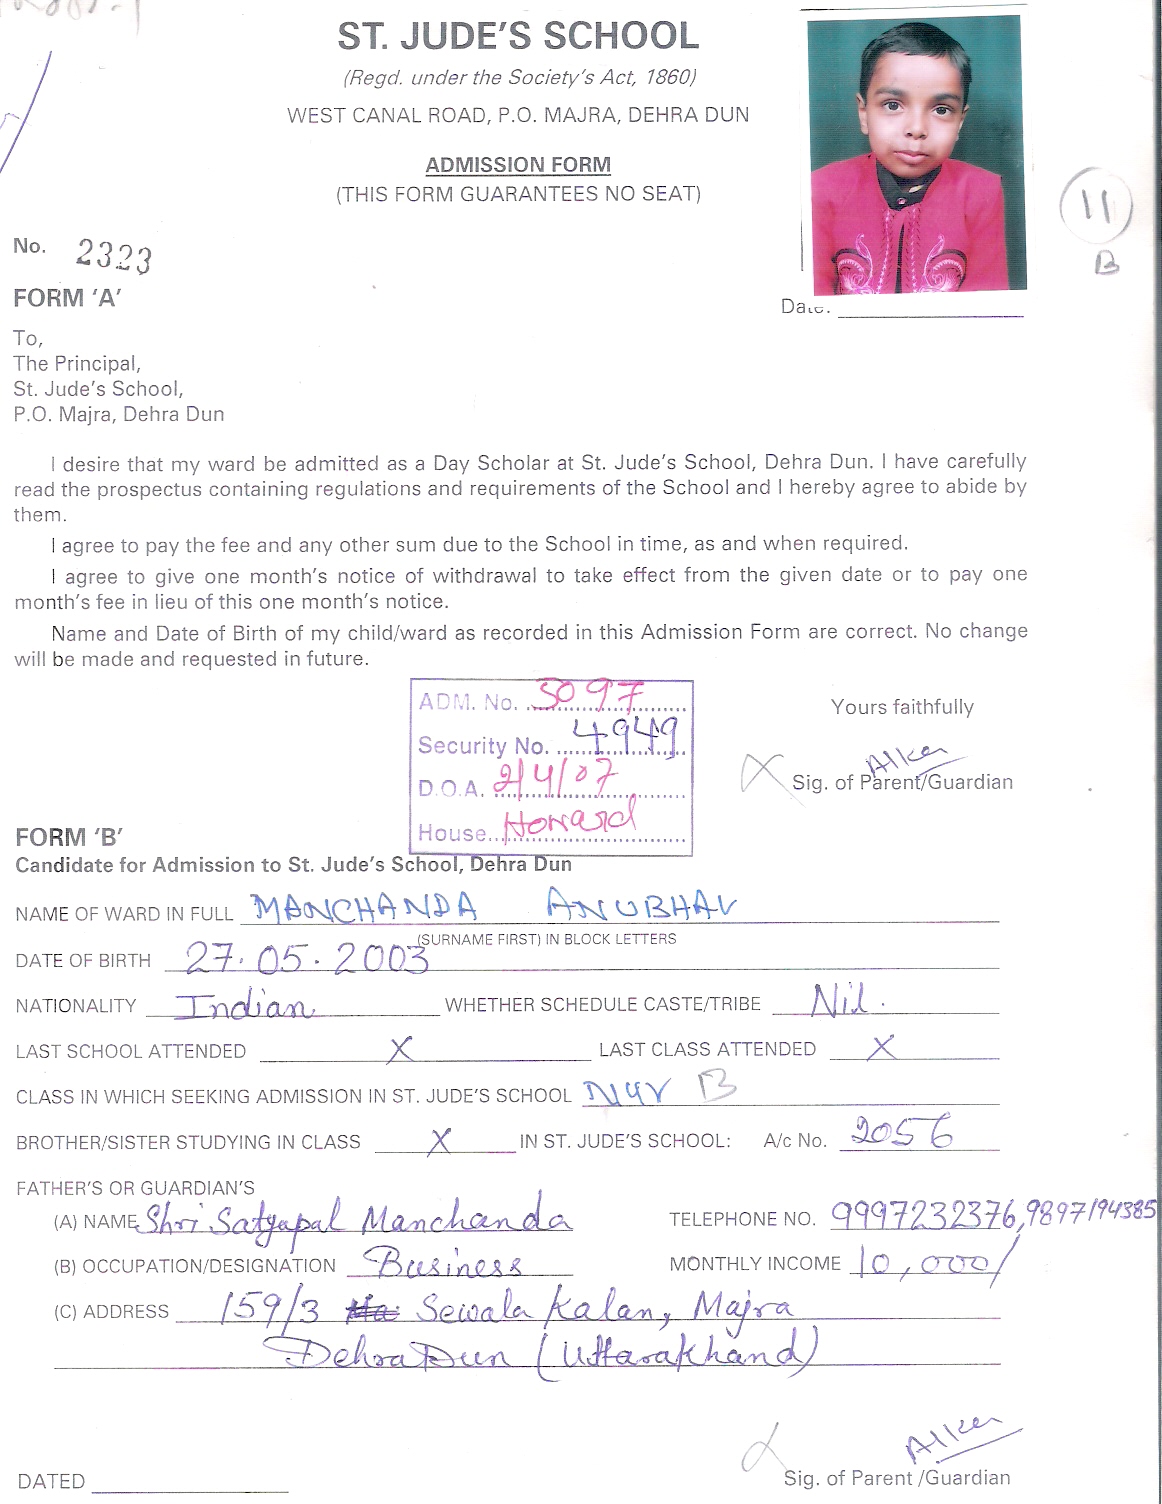 ST. JUDE'S SCHOOL
(Regd. under the Society's Act, 1860)
WEST CANAL ROAD, P.O. MAJRA, DEHRA DUN
ADMISSION FORM
(THIS FORM GUARANTEES NO SEAT)
11
B
No. 2323
FORM 'A'
Date:
To,
The Principal,
St. Jude's School,
P.O. Majra, Dehra Dun
I desire that my ward be admitted as a Day Scholar at St. Jude's School, Dehra Dun. I have carefully
read the prospectus containing regulations and requirements of the School and I hereby agree to abide by
them.
I agree to pay the fee and any other sum due to the School in time, as and when required.
I agree to give one month's notice of withdrawal to take effect from the given date or to pay one
month's fee in lieu of this one month's notice.
Name and Date of Birth of my child/ward as recorded in this Admission Form are correct. No change
will be made and requested in future.
ADM. No. 5097
Security No. 4949
D.O.A. 2/4/07
House Howard
Yours faithfully
Alka
Sig. of Parent/Guardian
FORM 'B'
Candidate for Admission to St. Jude's School, Dehra Dun
NAME OF WARD IN FULL MANCHANDA ANUBHAV
(SURNAME FIRST) IN BLOCK LETTERS
DATE OF BIRTH 27.05.2003
NATIONALITY Indian WHETHER SCHEDULE CASTE/TRIBE Nil.
LAST SCHOOL ATTENDED X LAST CLASS ATTENDED X
CLASS IN WHICH SEEKING ADMISSION IN ST. JUDE'S SCHOOL B
BROTHER/SISTER STUDYING IN CLASS X IN ST. JUDE'S SCHOOL: A/c No. 2056
FATHER'S OR GUARDIAN'S
(A) NAME Shri Satyapal Manchanda TELEPHONE NO. 9997232376, 9897194385
(B) OCCUPATION/DESIGNATION Business MONTHLY INCOME 10,000/
(C) ADDRESS 159/3 Sewala Kalan, Majra
Dehra Dun (Uttarakhand)
Alka
DATED Sig. of Parent /Guardian